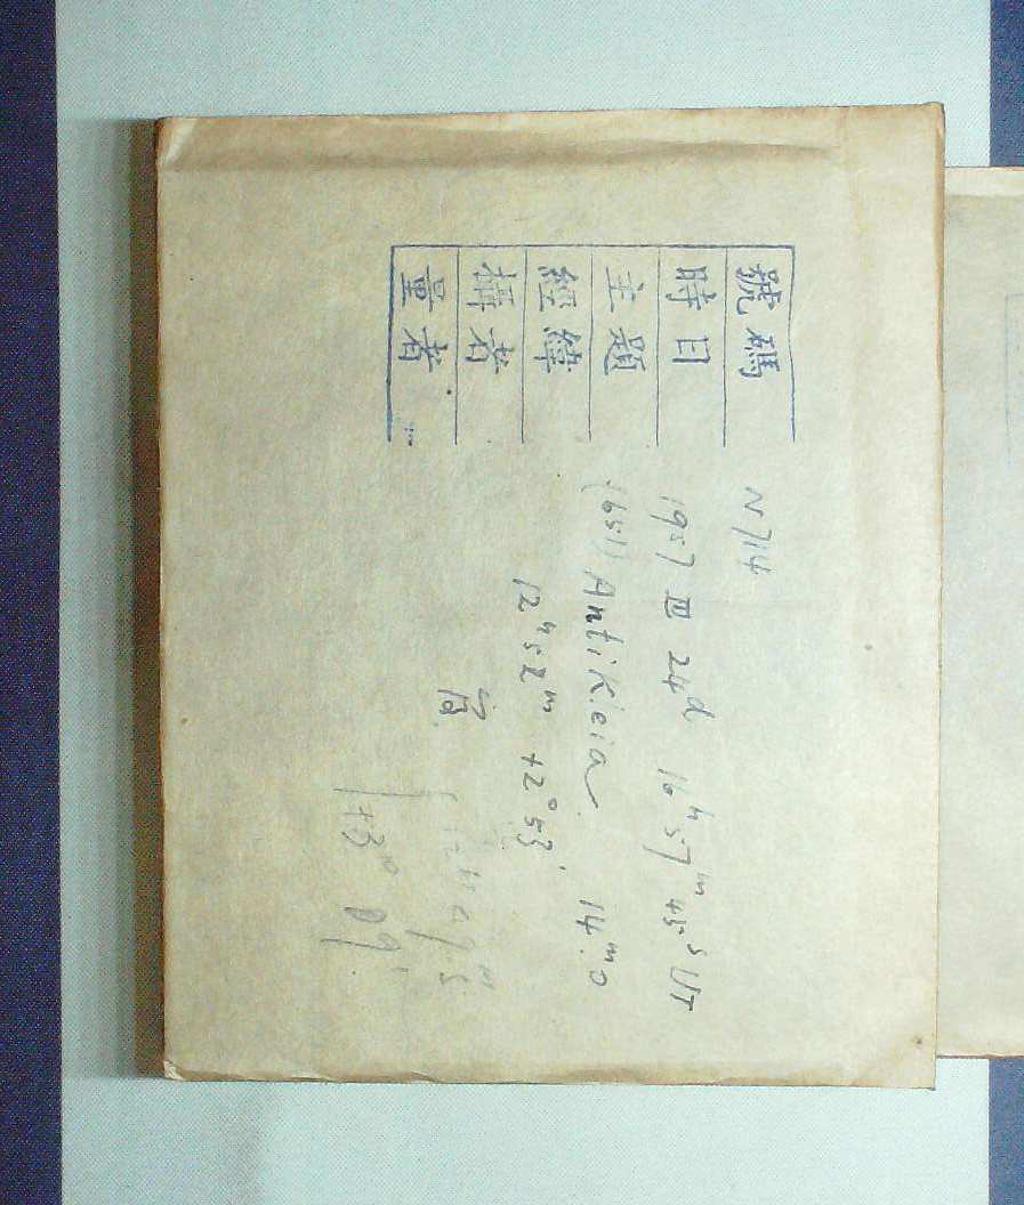 號碼 N714
時日 1957 III 24ᵈ 16ʰ57ᵐ45ˢ UT
主題 (651) Antikleia 14ᵐ.0
經緯 12ʰ52ᵐ +2°53'
攝者
量者
+3° 09'